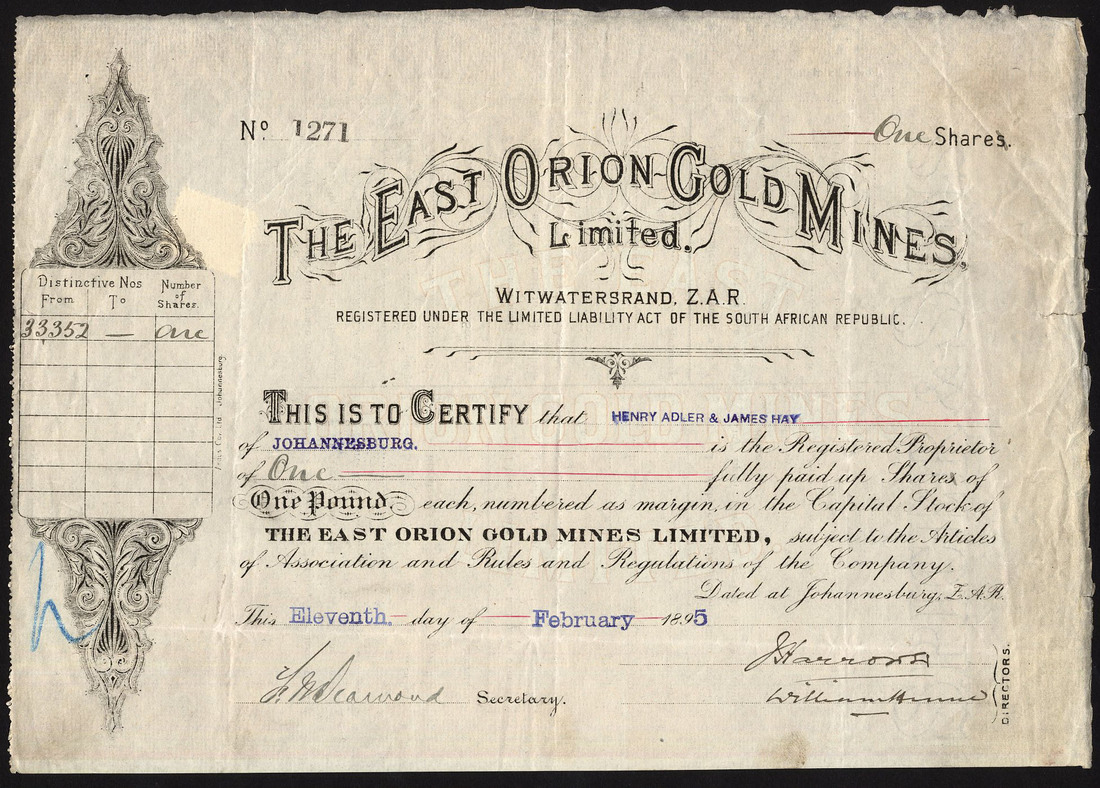 No 1271
One Shares.
THE EAST ORION GOLD MINES,
Limited.
WITWATERSRAND, Z.A.R.
REGISTERED UNDER THE LIMITED LIABILITY ACT OF THE SOUTH AFRICAN REPUBLIC.
Distinctive Nos Number
From To of Shares.
33352 — One
THIS IS TO CERTIFY that HENRY ADLER & JAMES HAY
of JOHANNESBURG. is the Registered Proprietor
of One fully paid up Shares of
One Pound. each, numbered as margin, in the Capital Stock of
THE EAST ORION GOLD MINES LIMITED, subject to the Articles
of Association and Rules and Regulations of the Company.
Dated at Johannesburg, Z.A.R.
This Eleventh. day of February 1895
Secretary.
William
DIRECTORS.
Co., Ltd. Johannesburg